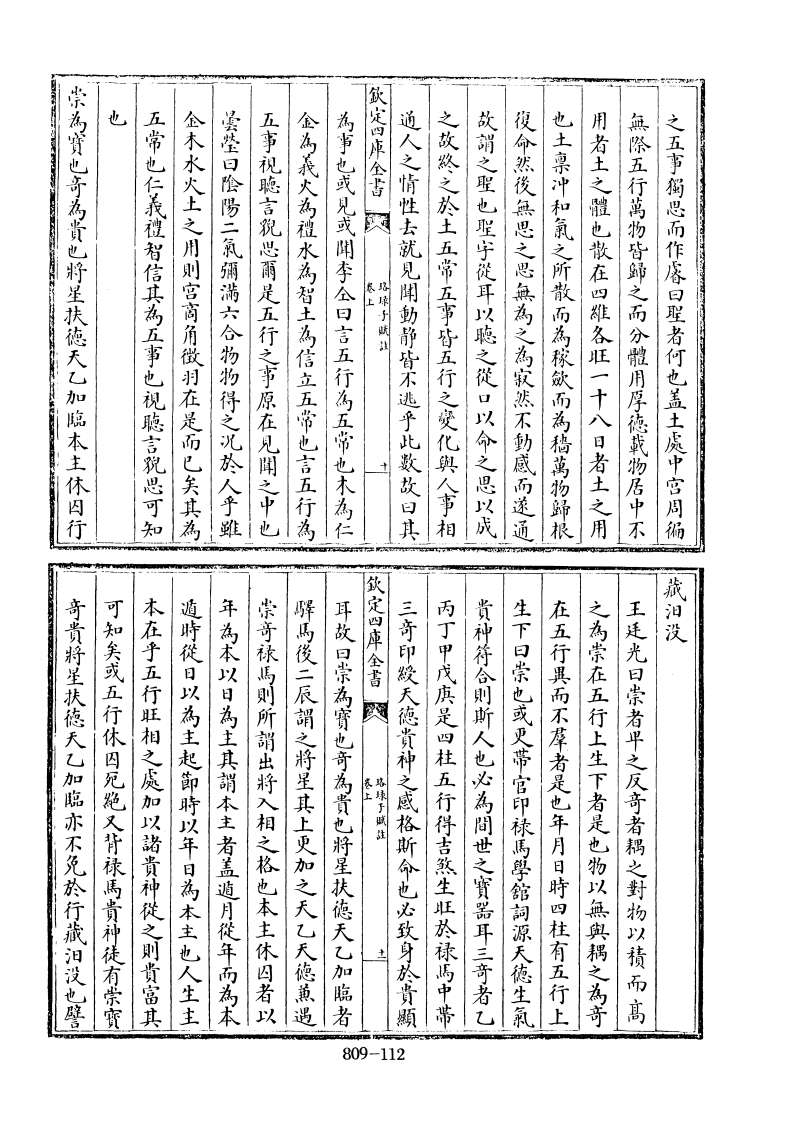 之五事獨思而作睿曰聖者何也盖土處中宮周徧
無際五行萬物皆歸之而分體用厚德載物居中不
用者土之體也散在四維各旺一十八日者土之用
也土禀冲和氣之所散而為稼歛而為穡萬物歸根
復命然後無思之思無為之為寂然不動感而遂通
故謂之聖也聖字從耳以聽之從口以命之思以成
之故終之於土五常五事皆五行之變化與人事相
通人之情性去就見聞動静皆不逃乎此數故曰其
欽定四庫全書
珞琭子賦註
卷上
十
為事也或見或聞李仝曰言五行為五常也木為仁
金為義火為禮水為智土為信立五常也言五行為
五事視聽言貌思爾是五行之事原在見聞之中也
曇瑩曰陰陽二氣彌滿六合物物得之况於人乎雖
金木水火土之用則宫商角徵羽在是而已矣其為
五常也仁義禮智信其為五事也視聽言貌思可知
也
崇為寳也奇為貴也將星扶德天乙加臨本主休囚行
藏汨没
王廷光曰崇者卑之反奇者耦之對物以積而髙
之為崇在五行上生下者是也物以無與耦之為奇
在五行異而不羣者是也年月日時四柱有五行上
生下曰崇也或更帶官印禄馬學館詞源天德生氣
貴神符合則斯人也必為間世之寳器耳三奇者乙
丙丁甲戊庚是四柱五行得吉煞生旺於禄馬中帶
三奇印綬天德貴神之感格斯命也必致身於貴顯
欽定四庫全書
珞琭子賦註
卷上
十一
耳故曰崇為寳也奇為貴也將星扶德天乙加臨者
驛馬後二辰謂之將星其上更加之天乙天德兼遇
崇奇禄馬則所謂出將入相之格也本主休囚者以
年為本以日為主其謂本主者盖遁月從年而為本
遁時從日以為主起節時以年日為本主也人生主
本在乎五行旺相之處加以諸貴神從之則貴富其
可知矣或五行休囚死絶又背禄馬貴神徒有崇寳
奇貴將星扶德天乙加臨亦不免於行藏汨没也譬
809-112